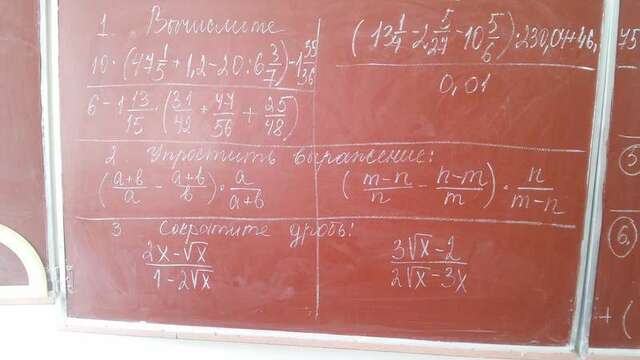 1. Вычислите
10·(47 1/5 + 1,2 − 20 : 6 3/7) − 1 35/36
6 − 1 13/15 · (31/42 + 47/56 + 25/48)
(13 1/4 − 2 5/27 − 10 5/6) · 230,04 + 46,75
0,01
2 Упростить выражение:
((a+b)/a − (a+b)/b) · a/(a+b)
((m−n)/n − (n−m)/m) · n/(m−n)
3 Сократите дробь:
(2x−√x)/(1−2√x)
(3√x−2)/(2√x−3x)
5
6,
+ (